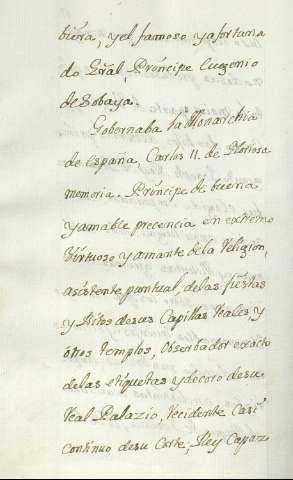 biera, y el famoso y afortuna
do Gral Principe Eugenio
de Sobaya.
Gobernaba la Monarchia
de España, Carlos II. de Gloriosa
memoria. Principe de buena
y amable precencia en extremo
Virtuoso y amante de la Religion,
asistente puntual, de las fiestas
y Sitos de sus Capillas Reales, y
otros Templos, Observador exacto
de las etiquetas y decoro de su
Real Palazio, recidente Casi
continuo de su Corte, Rey Capaz